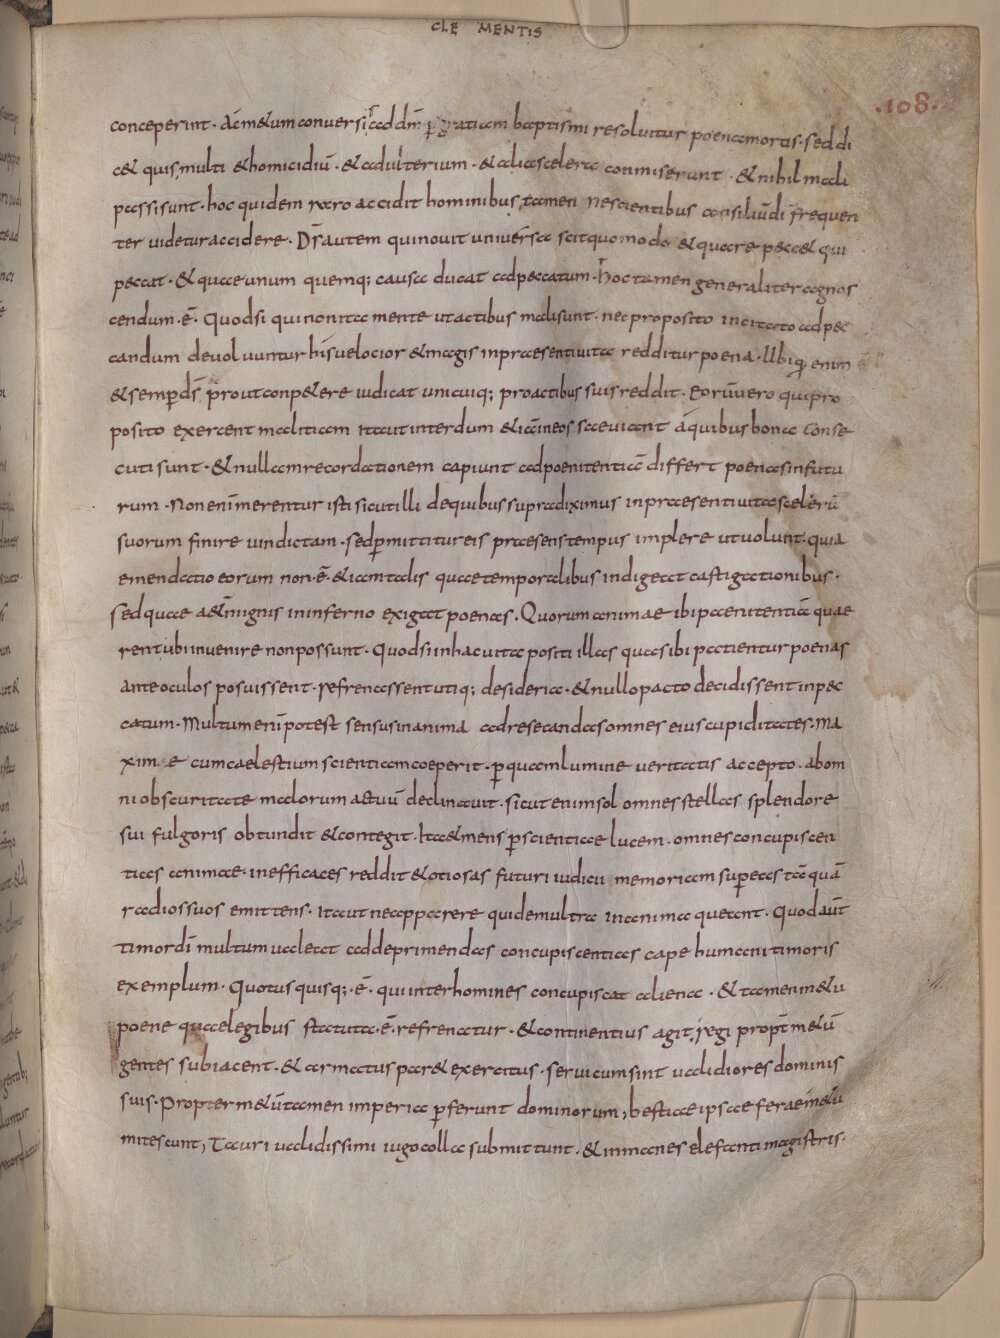 CLE MENTIS
.108.
conceperint. Ac metum conuersi ad dm̄ ꝑ gratiam baptismi resoluitur poena mortis. sed di
cet quis, multi & homicidiū. & adulterium. & alia scelera commiserunt. & nihil mali
passi sunt. hoc quidem raro accidit hominibus, tamen nescientibus consiliū di frequen
ter uidetur accidere. Ds̄ autem qui nouit uniuersa scit quomodo & quare peccet qui
peccat. & quae unum quemq; causa ducat ad peccatum. hoc tamen generaliter agnos
cendum. ē. Quod si qui non ita mente ut actibus mali sunt. nec proposito incitato ad pec
candum deuoluuntur his uelocior & magis in praesenti uita redditur poena. Ubiq, enim ē
& semp ds̄ prout conpetere iudicat unicuiq; pro actibus suis reddit. Eorū uero qui pro
posito exercent malitiam ita ut interdum & iā in eos saeuiant a quibus bona conse
cuti sunt. & nullam recordationem capiunt ad poenitentiā differt poenas in futu
rum. Non enī merentur isti sicut illi de quibus supra diximus in praesenti uita scelerū
suorum finire uindictam. sed ꝑmittitur eis praesens tempus implere ut uolunt. quia
emendatio eorum non. ē. & iam talis quae temporalibus indigeat castigationibus.
sed quae aet̄nis ignis in inferno exigeat poenas. Quorum animae ibi paenitentiā quae
rent ubi inuenire non possunt. Quod si in hac uita positi illas quas ibi patientur poenas
ante oculos posuissent. refrenassent utiq; desideria. & nullo pacto decidissent in pec
catum. Multum enī potest sensus in anima ad resecandas omnes eius cupiditates. Ma
xime cum caelestium scientiam coeperit. ꝑ quam lumine ueritatis accepto. ab om
ni obscuritate malorum actuū declinauit. sicut enim sol omnes stellas splendore
sui fulgoris obtundit & contegit. Ita & mens ꝑ scientiae lucem. omnes concupiscen
tias animae. inefficaces reddit & otiosas futuri iudicii memoriam suꝑ eas tā quā
radios suos emittens. ita ut nec apparere quidem ultra in anima queant. Quod aūt
timor dī multum ualeat ad deprimendas concupiscentias cape humani timoris
exemplum. Quotus quisq;. ē. qui inter homines concupiscat aliena. & tamen metu
poene quae legibus statuta. ē. refrenatur. & continentius agit. regi propt̄ metū
gentes subiacent. & armatus paret exercitus. serui cum sint ualidiores dominis
suis. Propter metū tamen imperia ꝑferunt dominorum; bestiae ipsae ferae metu
mitescunt; Tauri ualidissimi iugo colla submittunt. & inmanes elefanti magistris.